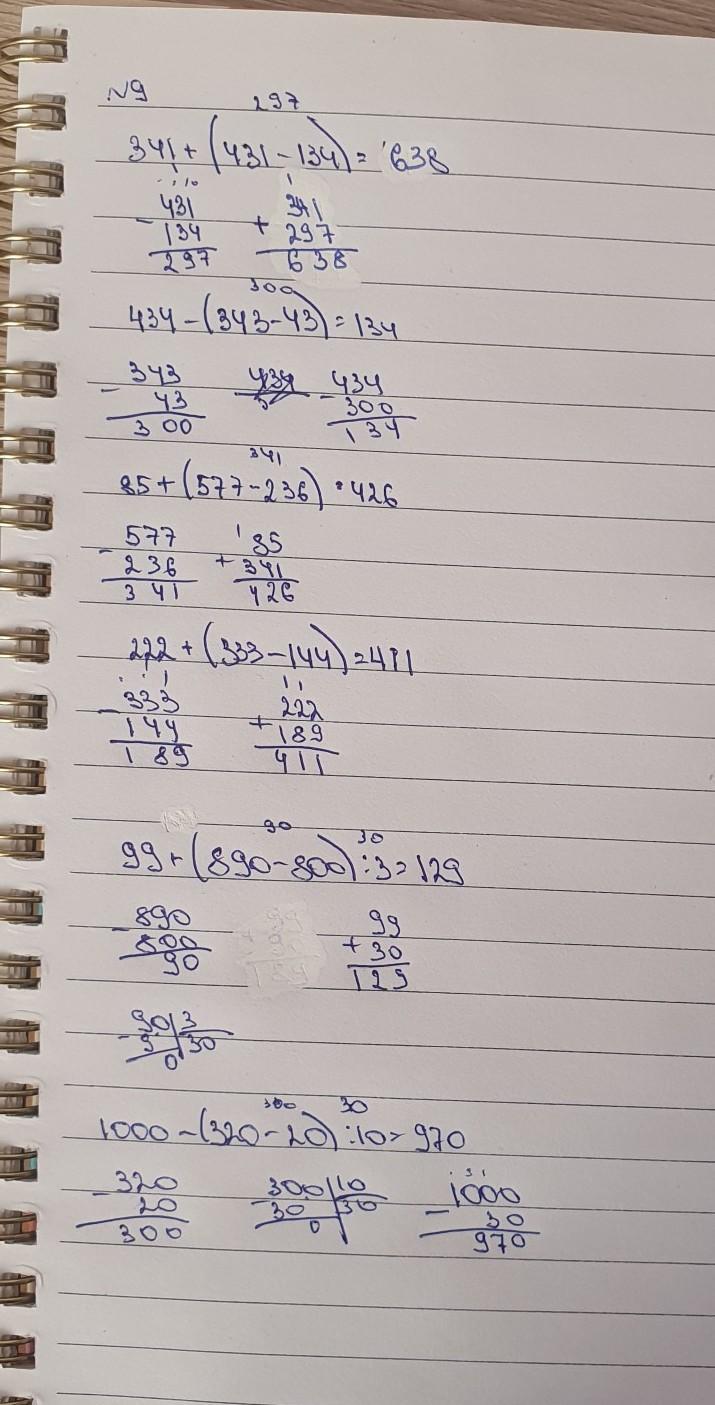 N9
297
341+(431-134)=638
431 341
- 134 + 297
297 638
300
434-(343-43)=134
343 434
- 43 - 300
300 134
341
85+(577-236)=426
1
577 85
- 236 + 341
341 426
222+(333-144)=411
1 1
333 222
- 144 + 189
189 411
90 30
99+(890-800):3=129
890 99
- 800 + 30
90 129
90 3
- 9 30
0
300 30
1000-(320-20):10=970
320 300 10 1000
- 20 - 30 30 - 30
300 0 970